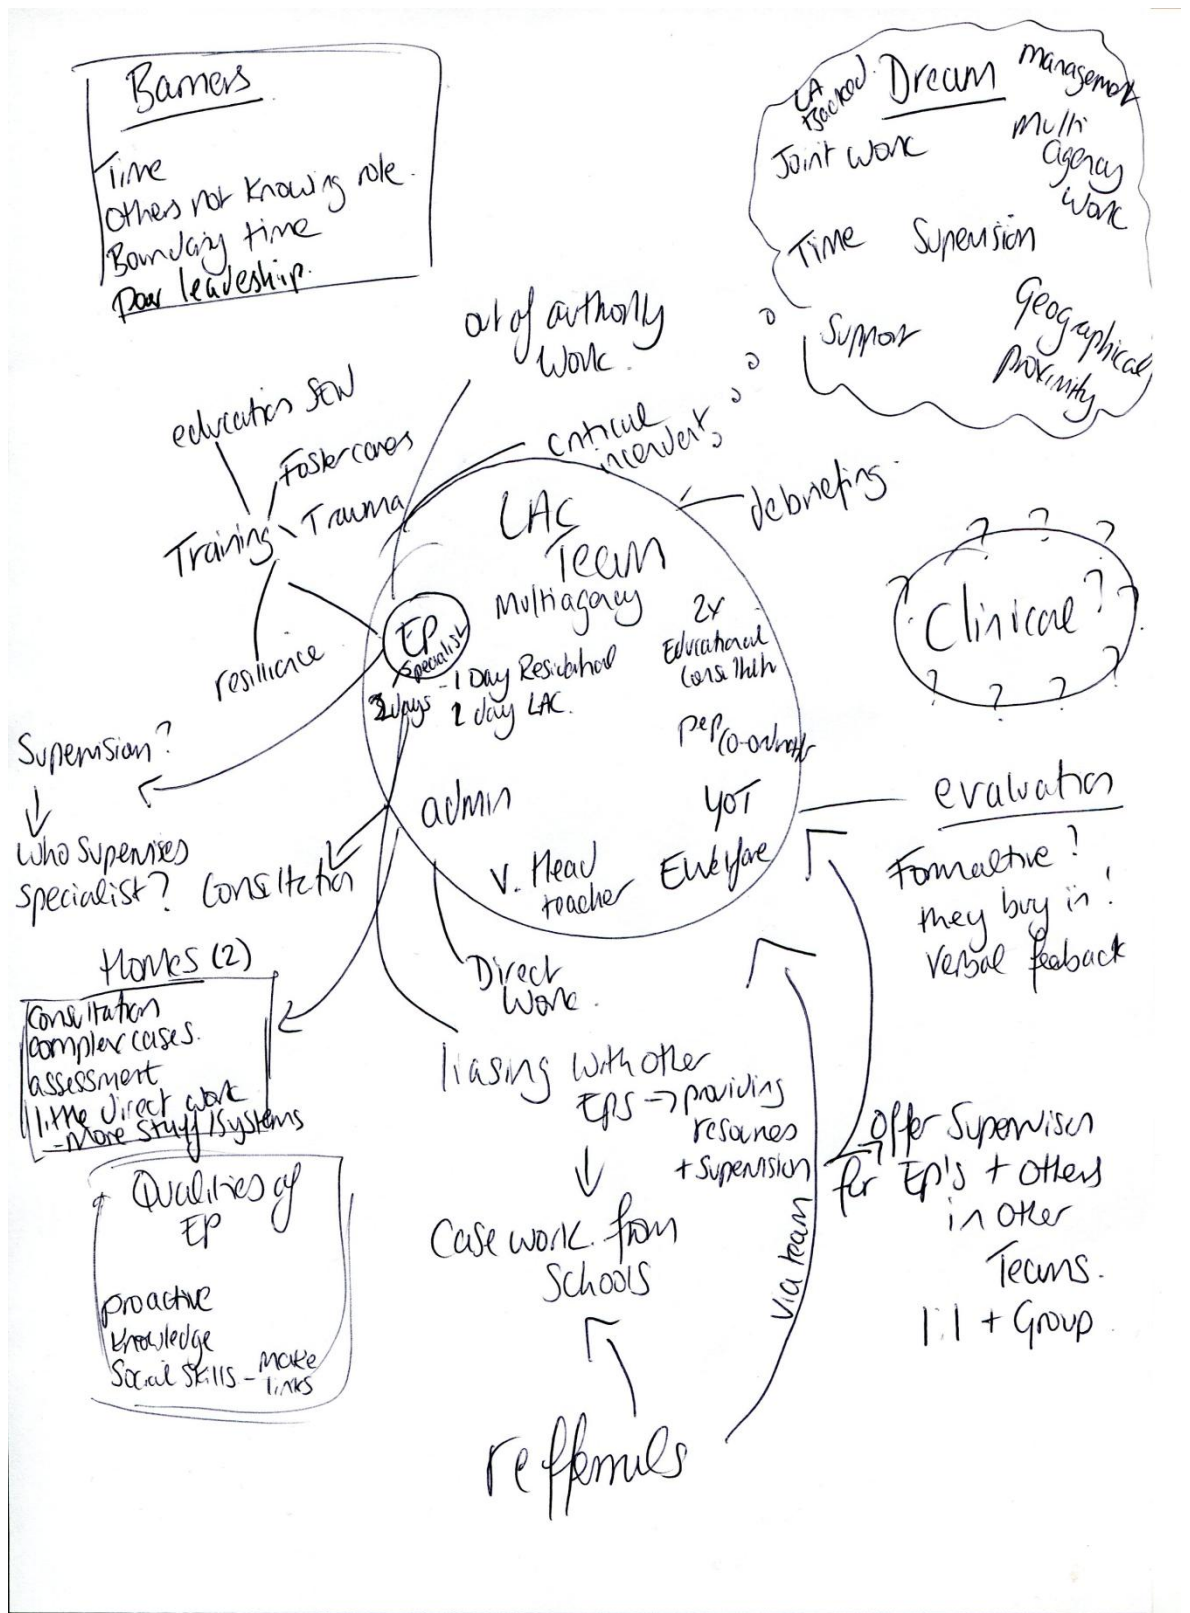 Barriers
Time
Others not knowing role.
Boundary time
poor leadeship.
LA
Backed.
Dream
management
Joint work
Multi
agency
work
Time
Supervision
Support
Geographical
proximity
out of authority
work.
critical
debriefing.
education SEN
Foster carers
Trauma
Training
resilience
LAC
Team
Multiagency
EP
specialist
days - 1 Day Residential
2 day LAC.
2x
Educational
pep co-ordinator
admin
YOT
V. Head
teacher
E Welfare
Clinical ?
? ? ? ? ? ? ? ?
Supervision?
who supervises
specialist?
Consultation
evaluation
Formaltive ?
they buy in !
verbal feeback
Homes (2)
Consultation
complex cases.
assessment
little direct work
- More staff/systems
Direct
work.
liasing with other
EPs → providing
resources
+ supervision
Case work from
Schools
via team
Offer Supervison
for EP's + others
in other
Teams.
1:1 + Group
Qualities of
EP
proactive
knowledge
Social skills - make
links
refferals